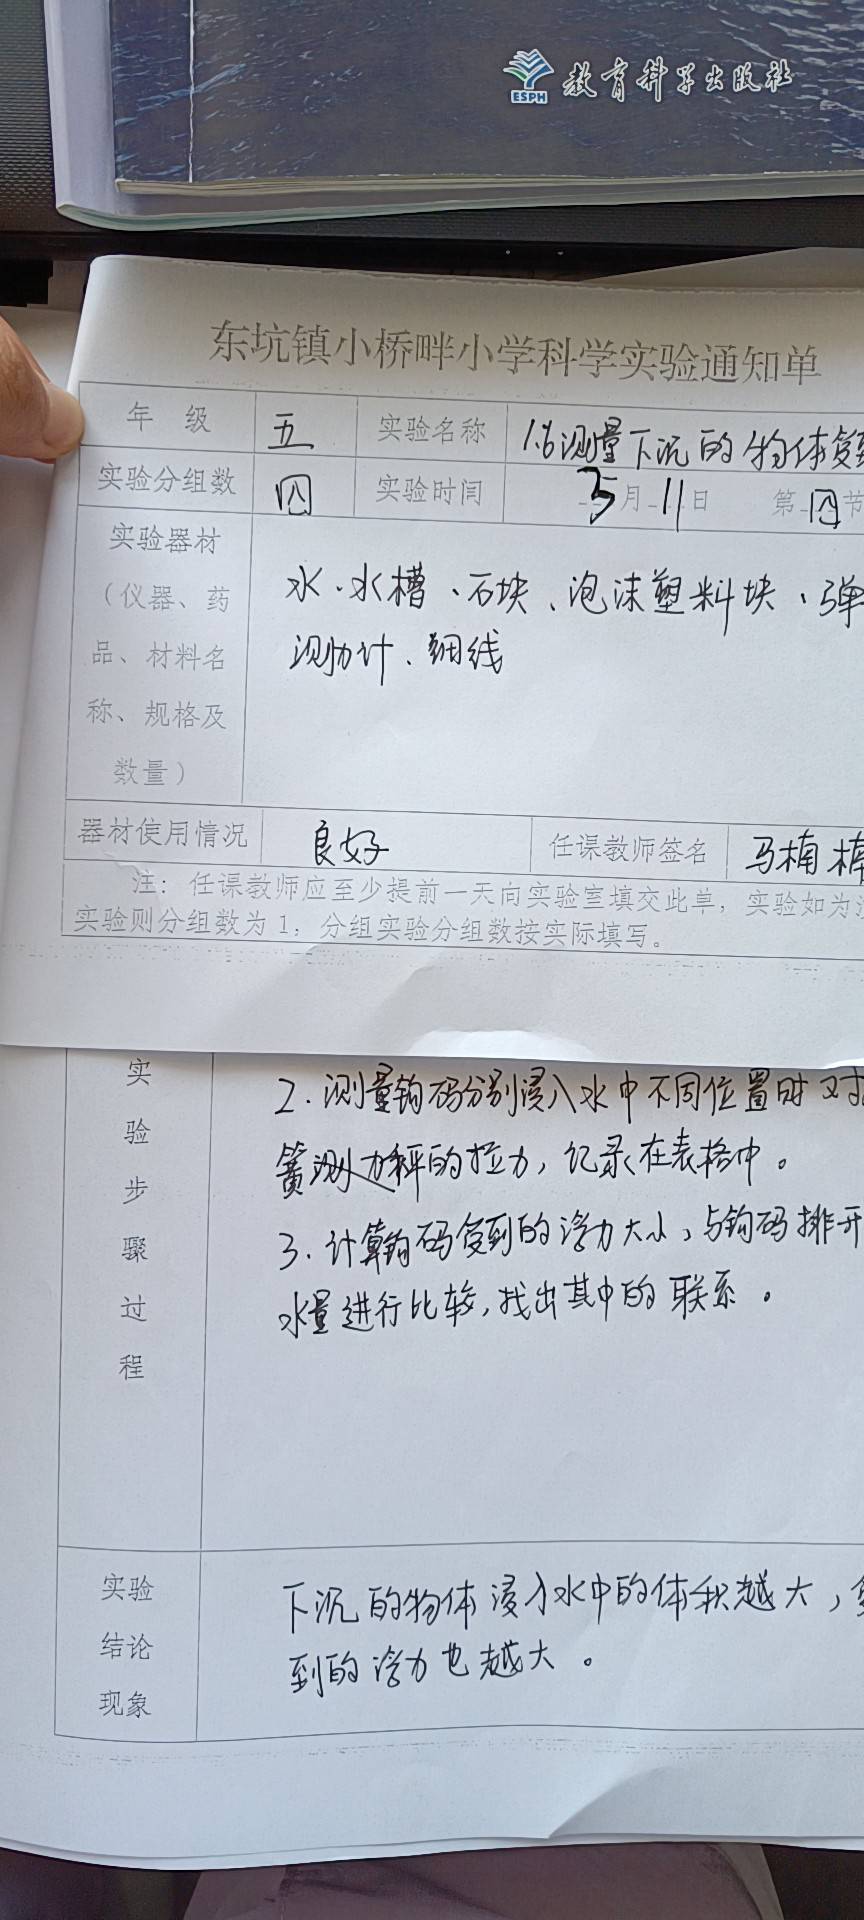 ESPH 教育科学出版社
东坑镇小桥畔小学科学实验通知单
年 级 五 实验名称 1.6测量下沉的物体受到
实验分组数 四 实验时间 5月11日 第四节
实验器材
（仪器、药
品、材料名
称、规格及
数量）
水、水槽、石块、泡沫塑料块、弹
测力计、细线
器材使用情况 良好 任课教师签名 马楠楠
注：任课教师应至少提前一天向实验室填交此单，实验如为
实验则分组数为1，分组实验分组数按实际填写。
实
验
步
骤
过
程
2.测量钩码分别浸入水中不同位置时对
簧测力秤的拉力，记录在表格中。
3.计算钩码受到的浮力大小，与钩码排开
水量进行比较，找出其中的联系。
实验
结论
现象
下沉的物体浸入水中的体积越大，受
到的浮力也越大。